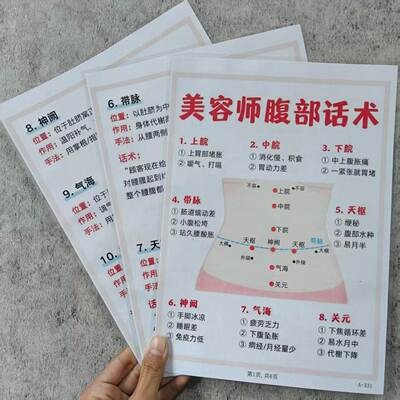 8. 神阙
位置：位于肚脐窝
作用：温阳补气、
手法：用掌根/指
9. 气海
位置：位于
作用：
手法：用
10.
6. 带脉
位置：以肚脐为中
作用：身体代谢
手法：从腰两侧
话术：
“顾客现在给
对腰腹起到
整个腰腹都
7. 天
美容师腹部话术
1. 上脘
① 上胃部堵胀
② 嗳气、打嗝
2. 中脘
① 消化慢、积食
② 胃动力差
3. 下脘
① 中上腹胀痛
② 一紧张就胃堵
4. 带脉
① 肠道蠕动差
② 小腹松垮
③ 站久腰酸胀
5. 天枢
① 便秘
② 腹部水肿
③ 易月半
不容
上脘
不容
中脘
下脘
天枢
神阙
天枢
带脉
大横
大横
外陵
外陵
气海
关元
6. 神阙
① 手脚冰凉
② 睡眠差
③ 免疫力低
7. 气海
① 疲劳乏力
② 下腹坠胀
③ 痛经/月经量少
8. 关元
① 下焦循环差
② 易水月中
③ 代榭下降
第1页, 共6页
A-331